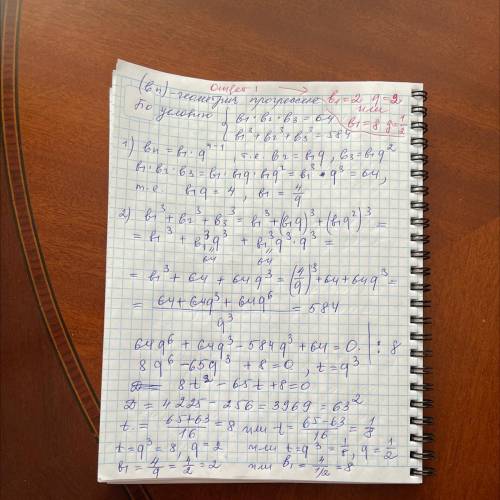 Ответ: → b₁=2 q=2
(bn) - геометрич. прогрессия или
По условию { b₁·b₂·b₃=64 b₁=8 q=1/2
{ b₁³+b₂³+b₃³=584
1) bn=b₁·qⁿ⁻¹, т.е. b₂=b₁q, b₃=b₁q²
b₁·b₂·b₃=b₁·b₁q·b₁q²=b₁³·q³=64,
т.е. b₁q=4, b₁=4/q
2) b₁³+b₂³+b₃³=b₁³+(b₁q)³+(b₁q²)³=
=b₁³+b₁³q³+b₁³q³·q³=
64 64
=b₁³+64+64q³=(4/q)³+64+64q³=
=(64+64q³+64q⁶)/q³=584
64q⁶+64q³-584q³+64=0 | : 8
8q⁶-65q³+8=0, t=q³
8t²-65t+8=0
D=4225-256=3969=63²
t=(65+63)/16=8 или t=(65-63)/16=1/8
t=q³=8, q=2 или t=q³=1/8, q=1/2
b₁=4/q=4/2=2 или b₁=4/1/2=8